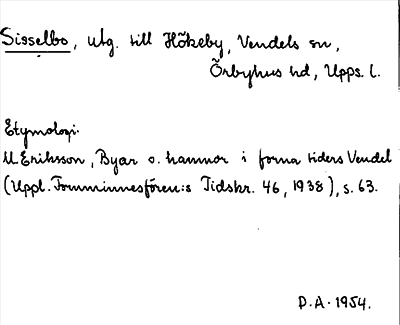 Sisselbo, utg. till Hökeby, Vendels sn,
Örbyhus hd, Upps. l.
Etymologi.
M Eriksson, Byar o. hamnor i forna tiders Vendel
(Uppl. Fornminnesfören:s Tidskr. 46, 1938), s. 63.
D.A. 1954.